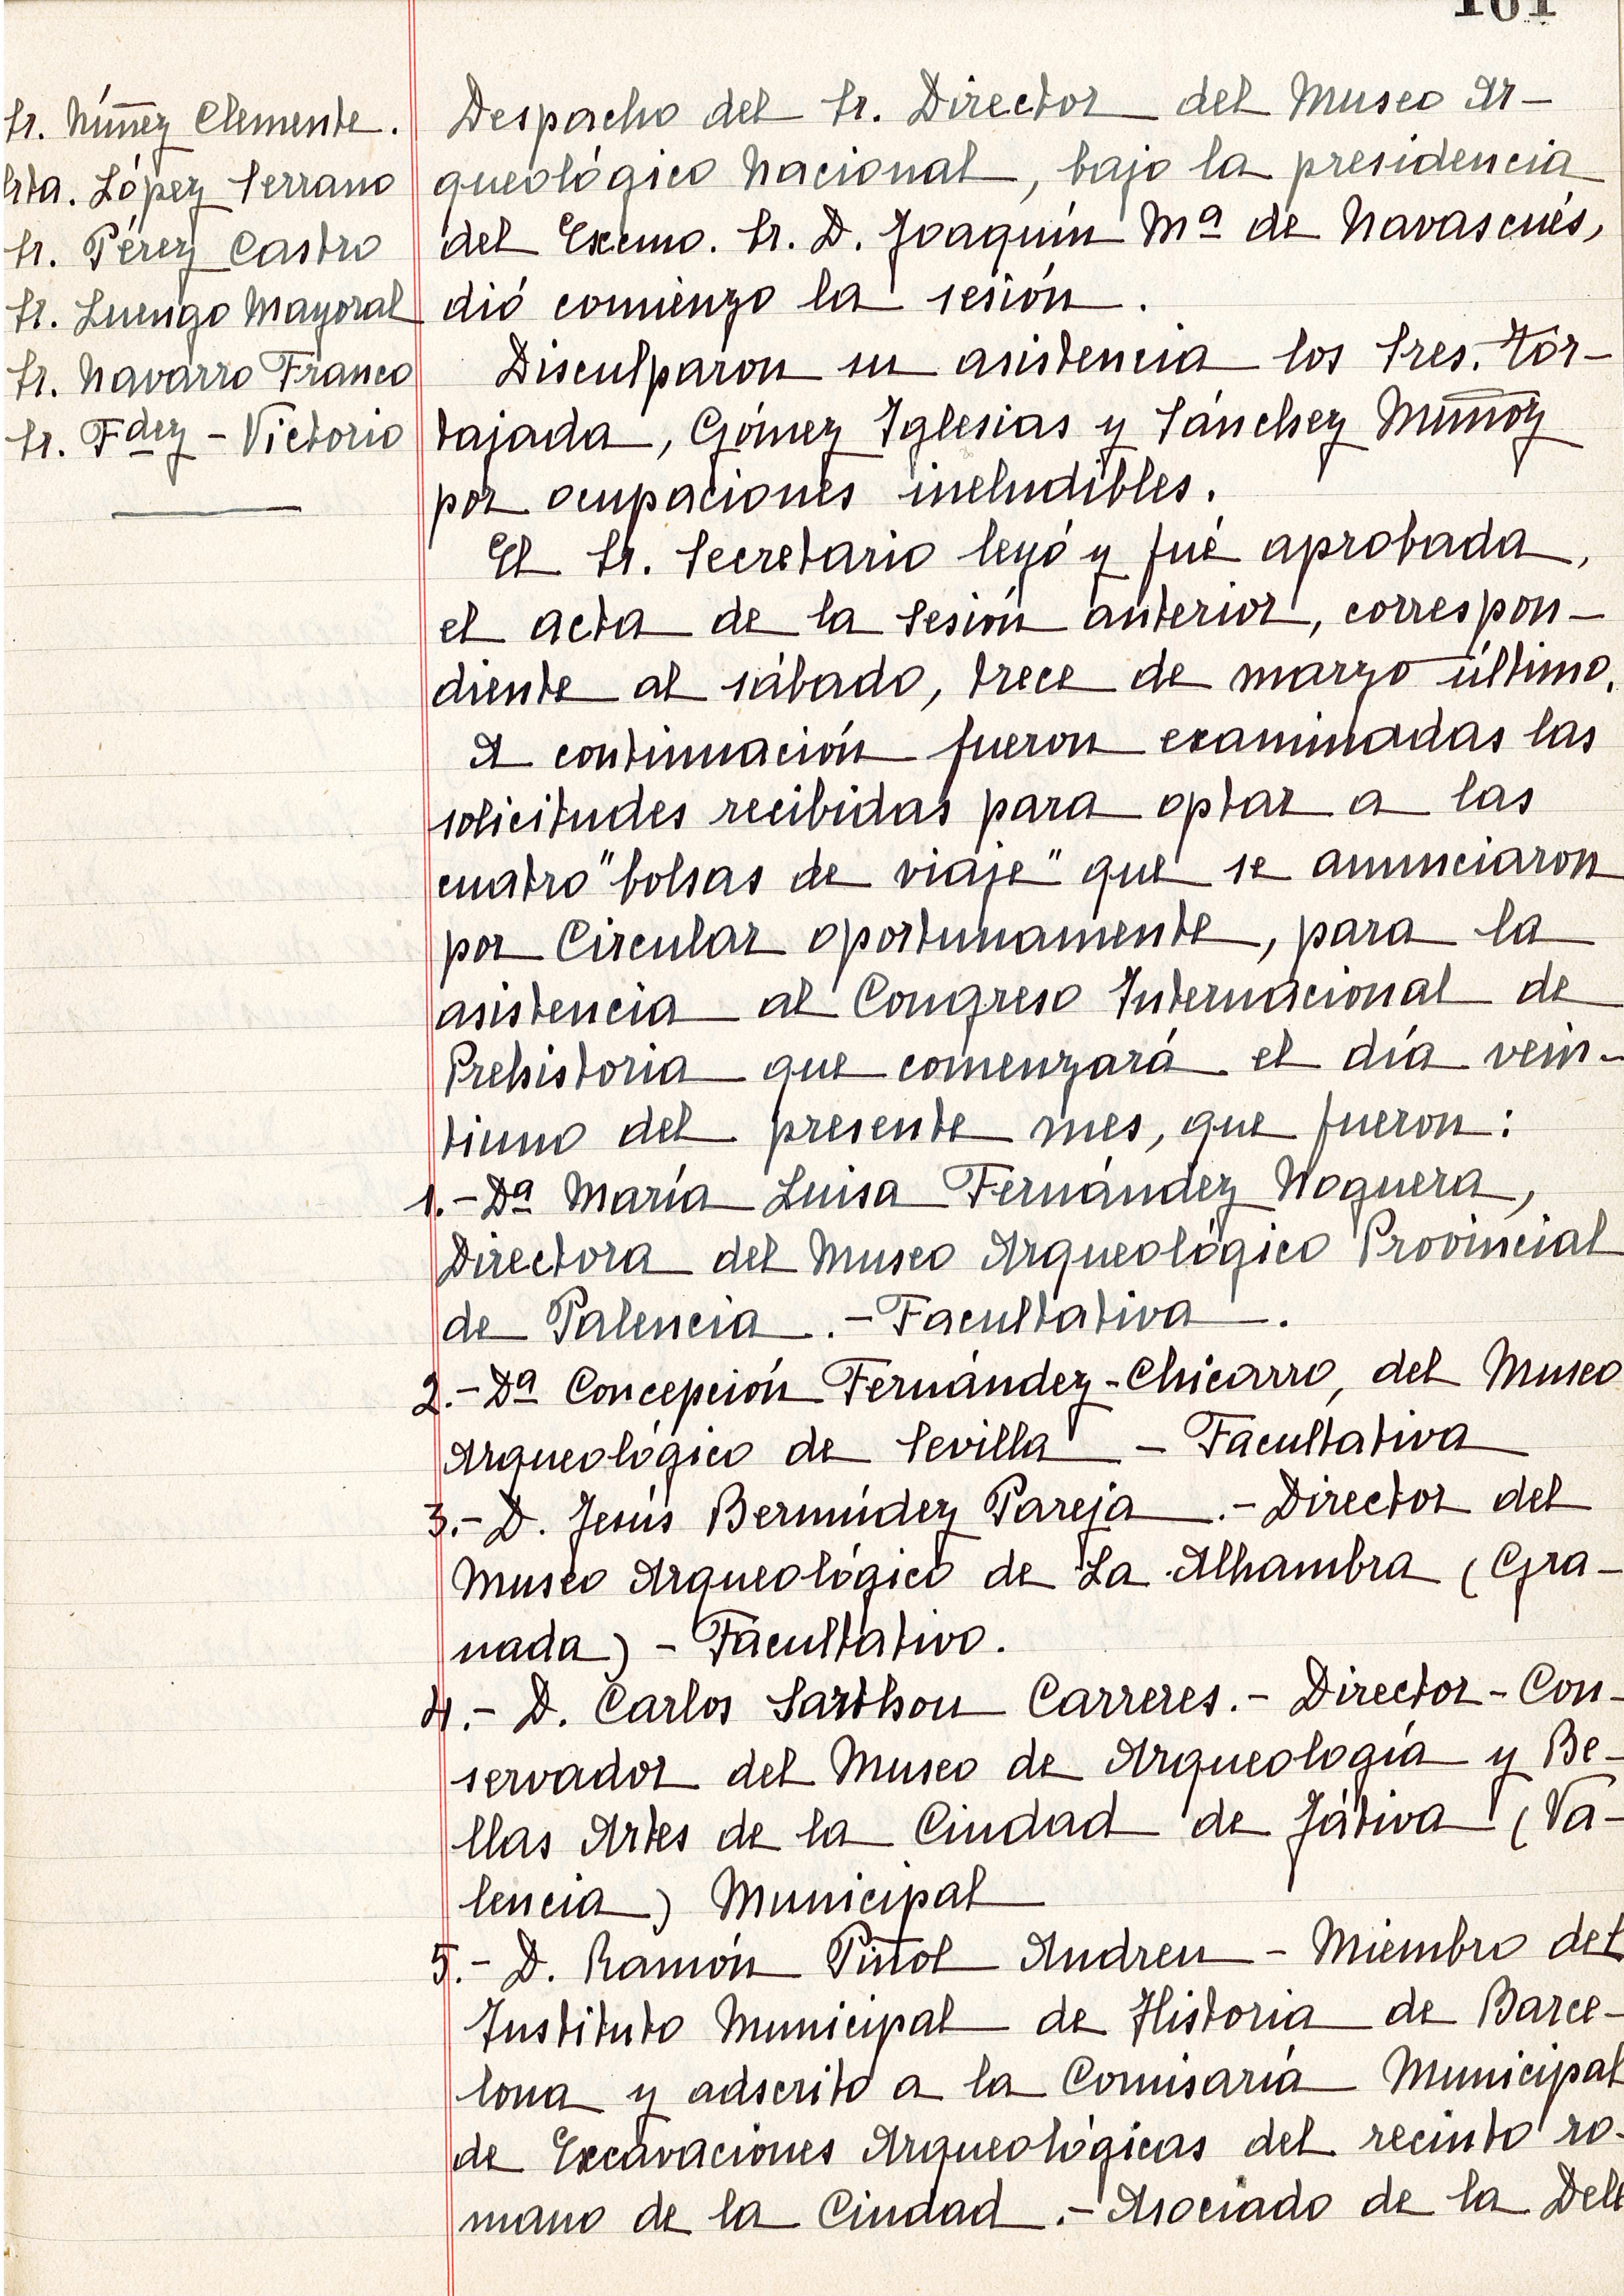 101
Sr. Núñez Clemente.
Srta. López Serrano
Sr. Pérez Castro
Sr. Luengo Mayoral
Sr. Navarro Franco
Sr. Fdez - Victorio
Despacho del Sr. Director del Museo Ar-
queológico Nacional, bajo la presidencia
del Excmo. Sr. D. Joaquín Mª de Navascués,
dió comienzo la sesión.
Disculparon su asistencia los Sres. Tor-
tajada, Gómez Iglesias y Sánchez Muñoz
por ocupaciones ineludibles.
El Sr. Secretario leyó y fué aprobada,
el acta de la Sesión anterior, correspon-
diente al sábado, trece de marzo último.
A continuación fueron examinadas las
solicitudes recibidas para optar a las
cuatro "bolsas de viaje" que se anunciaron
por Circular oportunamente, para la
asistencia al Congreso Internacional de
Prehistoria que comenzará el día vein-
tiuno del presente mes, que fueron:
1.- Dª María Luisa Fernández Noguera,
Directora del Museo Arqueológico Provincial
de Palencia.- Facultativa.
2.- Dª Concepción Fernández-Chicarro, del Museo
Arqueológico de Sevilla - Facultativa
3.- D. Jesús Bermúdez Pareja.- Director del
Museo Arqueológico de La Alhambra (Gra-
nada) - Facultativo.
4.- D. Carlos Sarthou Carreres.- Director-Con-
servador del Museo de Arqueología y Be-
llas Artes de la Ciudad de Játiva (Va-
lencia) Municipal
5.- D. Ramón Piñol Andreu - Miembro del
Instituto Municipal de Historia de Barce-
lona y adscrito a la Comisaría Municipal
de Excavaciones Arqueológicas del recinto ro-
mano de la Ciudad.- Asociado de la Dele